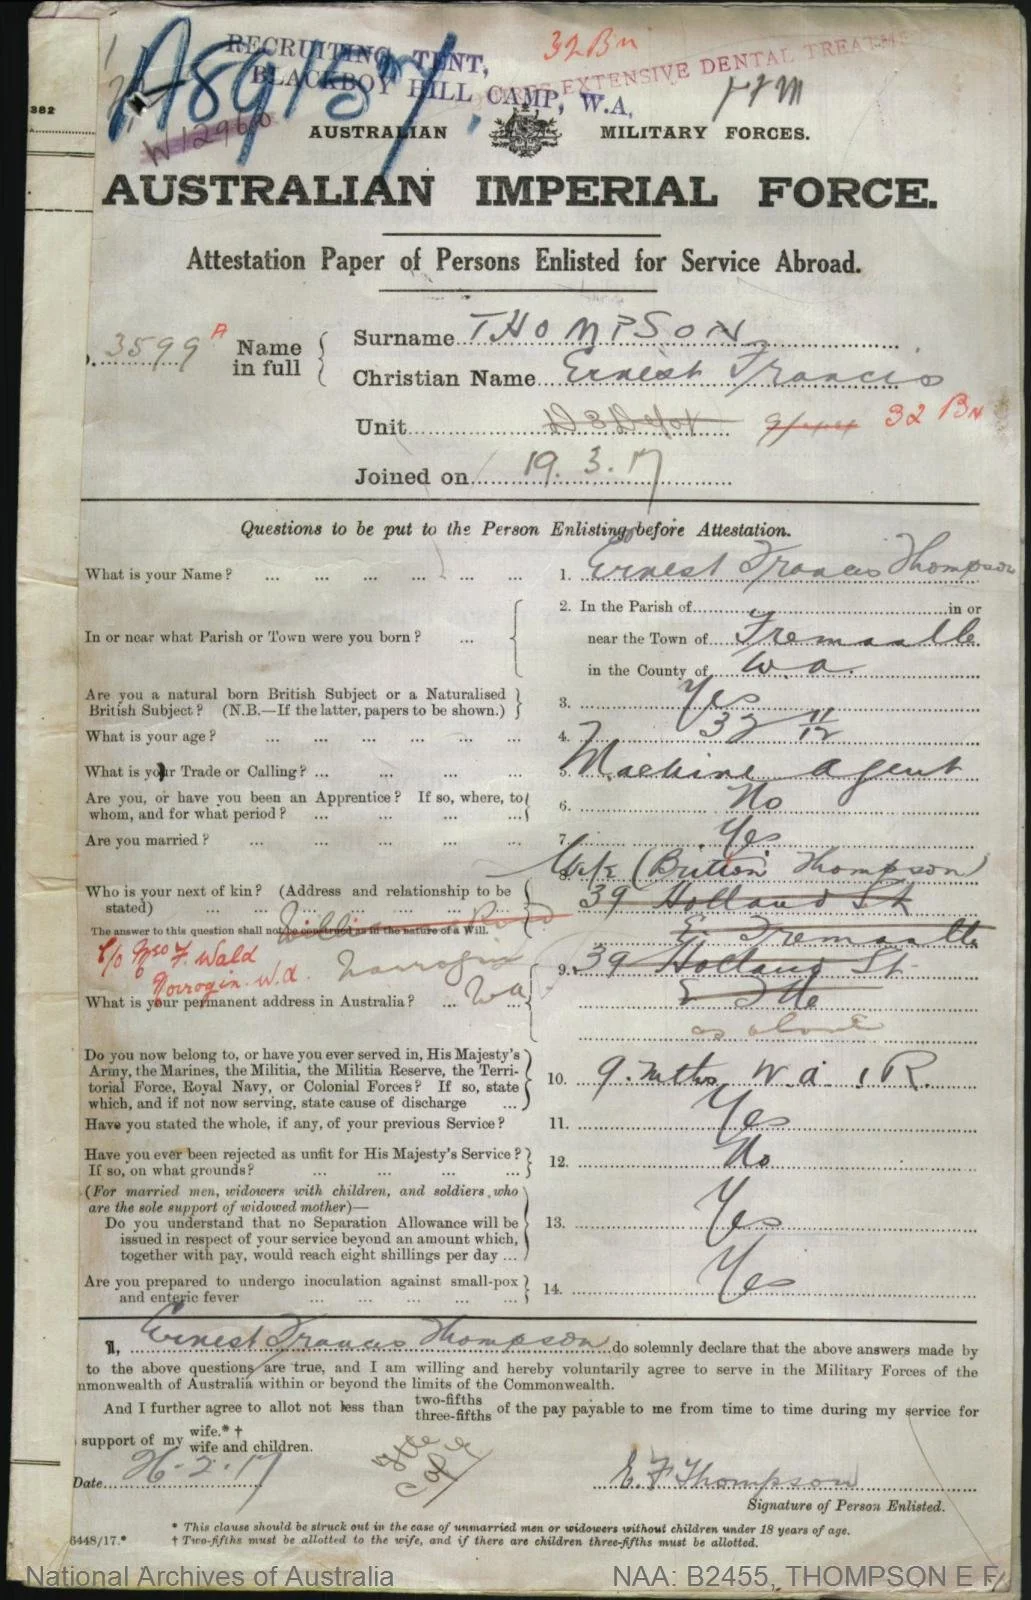 382
RECRUITING TENT,
BLACKBOY HILL CAMP, W.A.
32 Bn
EXTENSIVE DENTAL TREATM
AUSTRALIAN MILITARY FORCES.
AUSTRALIAN IMPERIAL FORCE.
Attestation Paper of Persons Enlisted for Service Abroad.
3599 A Name in full
Surname THOMPSON
Christian Name Ernest Francis
Unit D3 Depot 32 Bn
Joined on 19.3.17
Questions to be put to the Person Enlisting before Attestation.
What is your Name? ... 1. Ernest Francis Thompson
In or near what Parish or Town were you born? ... 2. In the Parish of in or
near the Town of Fremantle
in the County of W.A.
Are you a natural born British Subject or a Naturalised
British Subject? (N.B.—If the latter, papers to be shown.) 3. Yes
What is your age? ... 4. 32 11/12
What is your Trade or Calling? ... 5. Machine Agent
Are you, or have you been an Apprentice? If so, where, to
whom, and for what period? ... 6. No
Are you married? ... 7. Yes
8. Wife (Thompson)
Who is your next of kin? (Address and relationship to be
stated) ... 39 Holland St
E. Fremantle
The answer to this question shall not be construed as in the nature of a Will.
c/o F. Wald
Narrogin. W.A.
Narrogin
W.A.
What is your permanent address in Australia? ... 9. 39 Holland St.
E Ftle
as above
Do you now belong to, or have you ever served in, His Majesty's
Army, the Marines, the Militia, the Militia Reserve, the Terri-
torial Force, Royal Navy, or Colonial Forces? If so, state
which, and if not now serving, state cause of discharge ... 10. 9. mths W.A.I.R.
Have you stated the whole, if any, of your previous Service? 11. Yes
Have you ever been rejected as unfit for His Majesty's Service?
If so, on what grounds? ... 12. No
(For married men, widowers with children, and soldiers who
are the sole support of widowed mother)—
Do you understand that no Separation Allowance will be
issued in respect of your service beyond an amount which,
together with pay, would reach eight shillings per day ... 13. Yes
Are you prepared to undergo inoculation against small-pox
and enteric fever ... 14. Yes
I, Ernest Francis Thompson do solemnly declare that the above answers made by
to the above questions are true, and I am willing and hereby voluntarily agree to serve in the Military Forces of the
mmonwealth of Australia within or beyond the limits of the Commonwealth.
And I further agree to allot not less than two-fifths three-fifths of the pay payable to me from time to time during my service for
support of my wife.* † wife and children.
Date 26.2.17
E F Thompson
Signature of Person Enlisted.
* This clause should be struck out in the case of unmarried men or widowers without children under 18 years of age.
6448/17.* † Two-fifths must be allotted to the wife, and if there are children three-fifths must be allotted.
National Archives of Australia NAA: B2455, THOMPSON E F